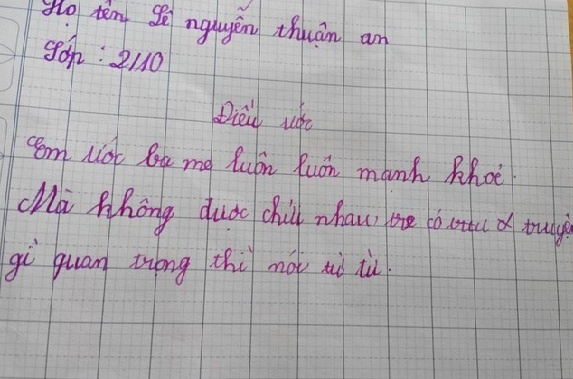 Họ tên Lê nguyễn thuận an
Lớp : 2/10
Điều ước
Em ước ba mẹ luôn luôn mạnh khoẻ.
Mà không được chửi nhau, có truyện
gì quan trọng thì nói từ từ.